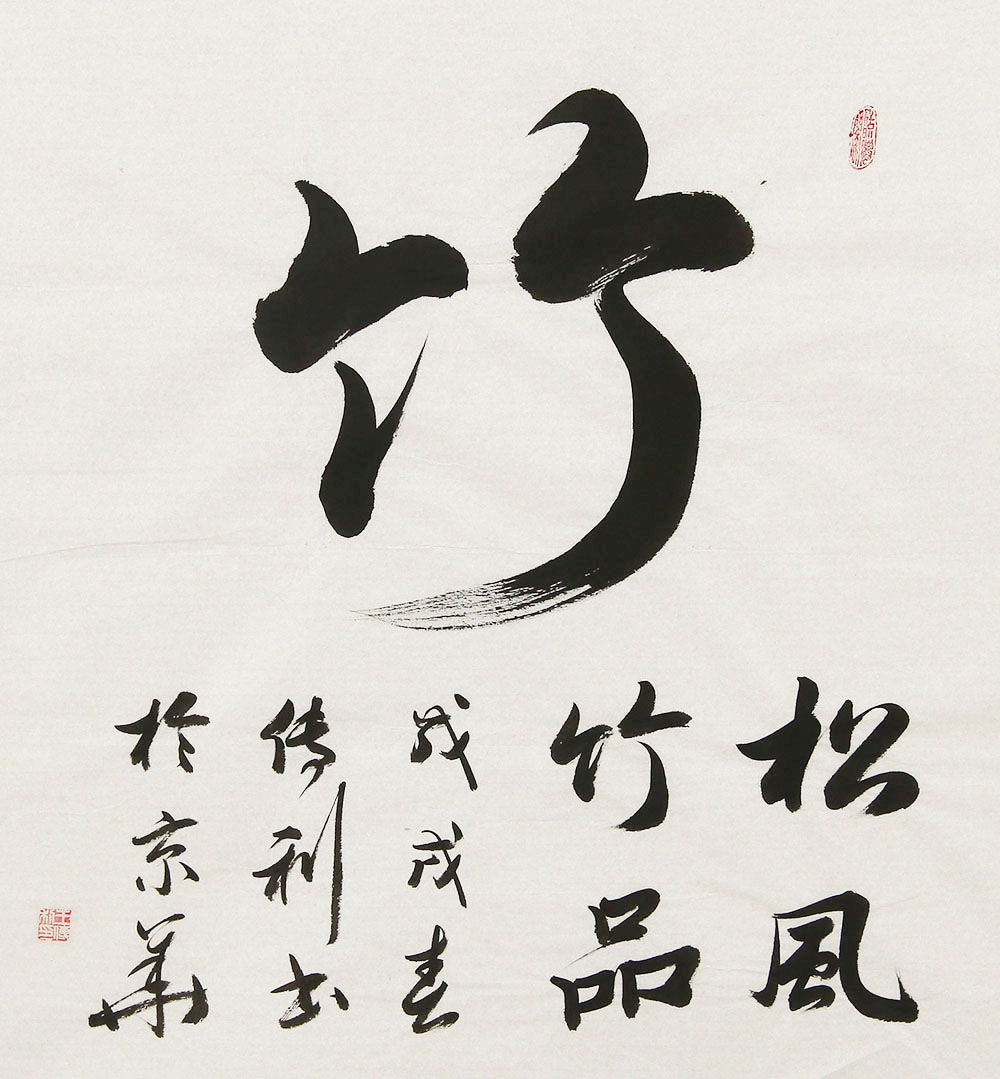 竹
松風
竹品
戊戌春
传利书
於京華